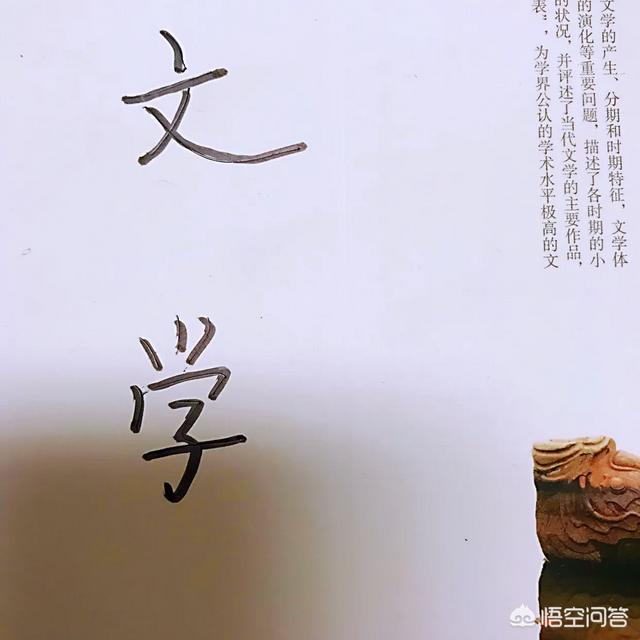 文学的产生、分期和时期特征，文学体
的演化等重要问题，描述了各时期的小
的状况，并评述了当代文学的主要作品，
表”，为学界公认的学术水平极高的文
文学
悟空问答